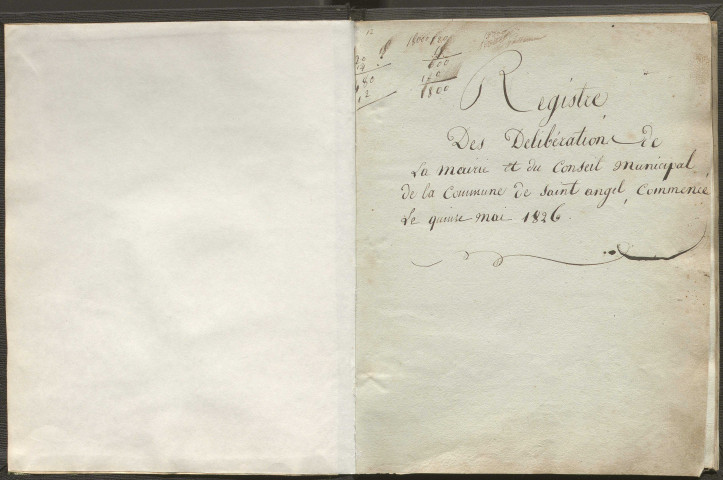 12
1800
600
1800
Registre
Des Deliberation de
La mairie et du Conseil municipal
de la Commune de Saint angel, Commencé
Le quinze mai 1826.